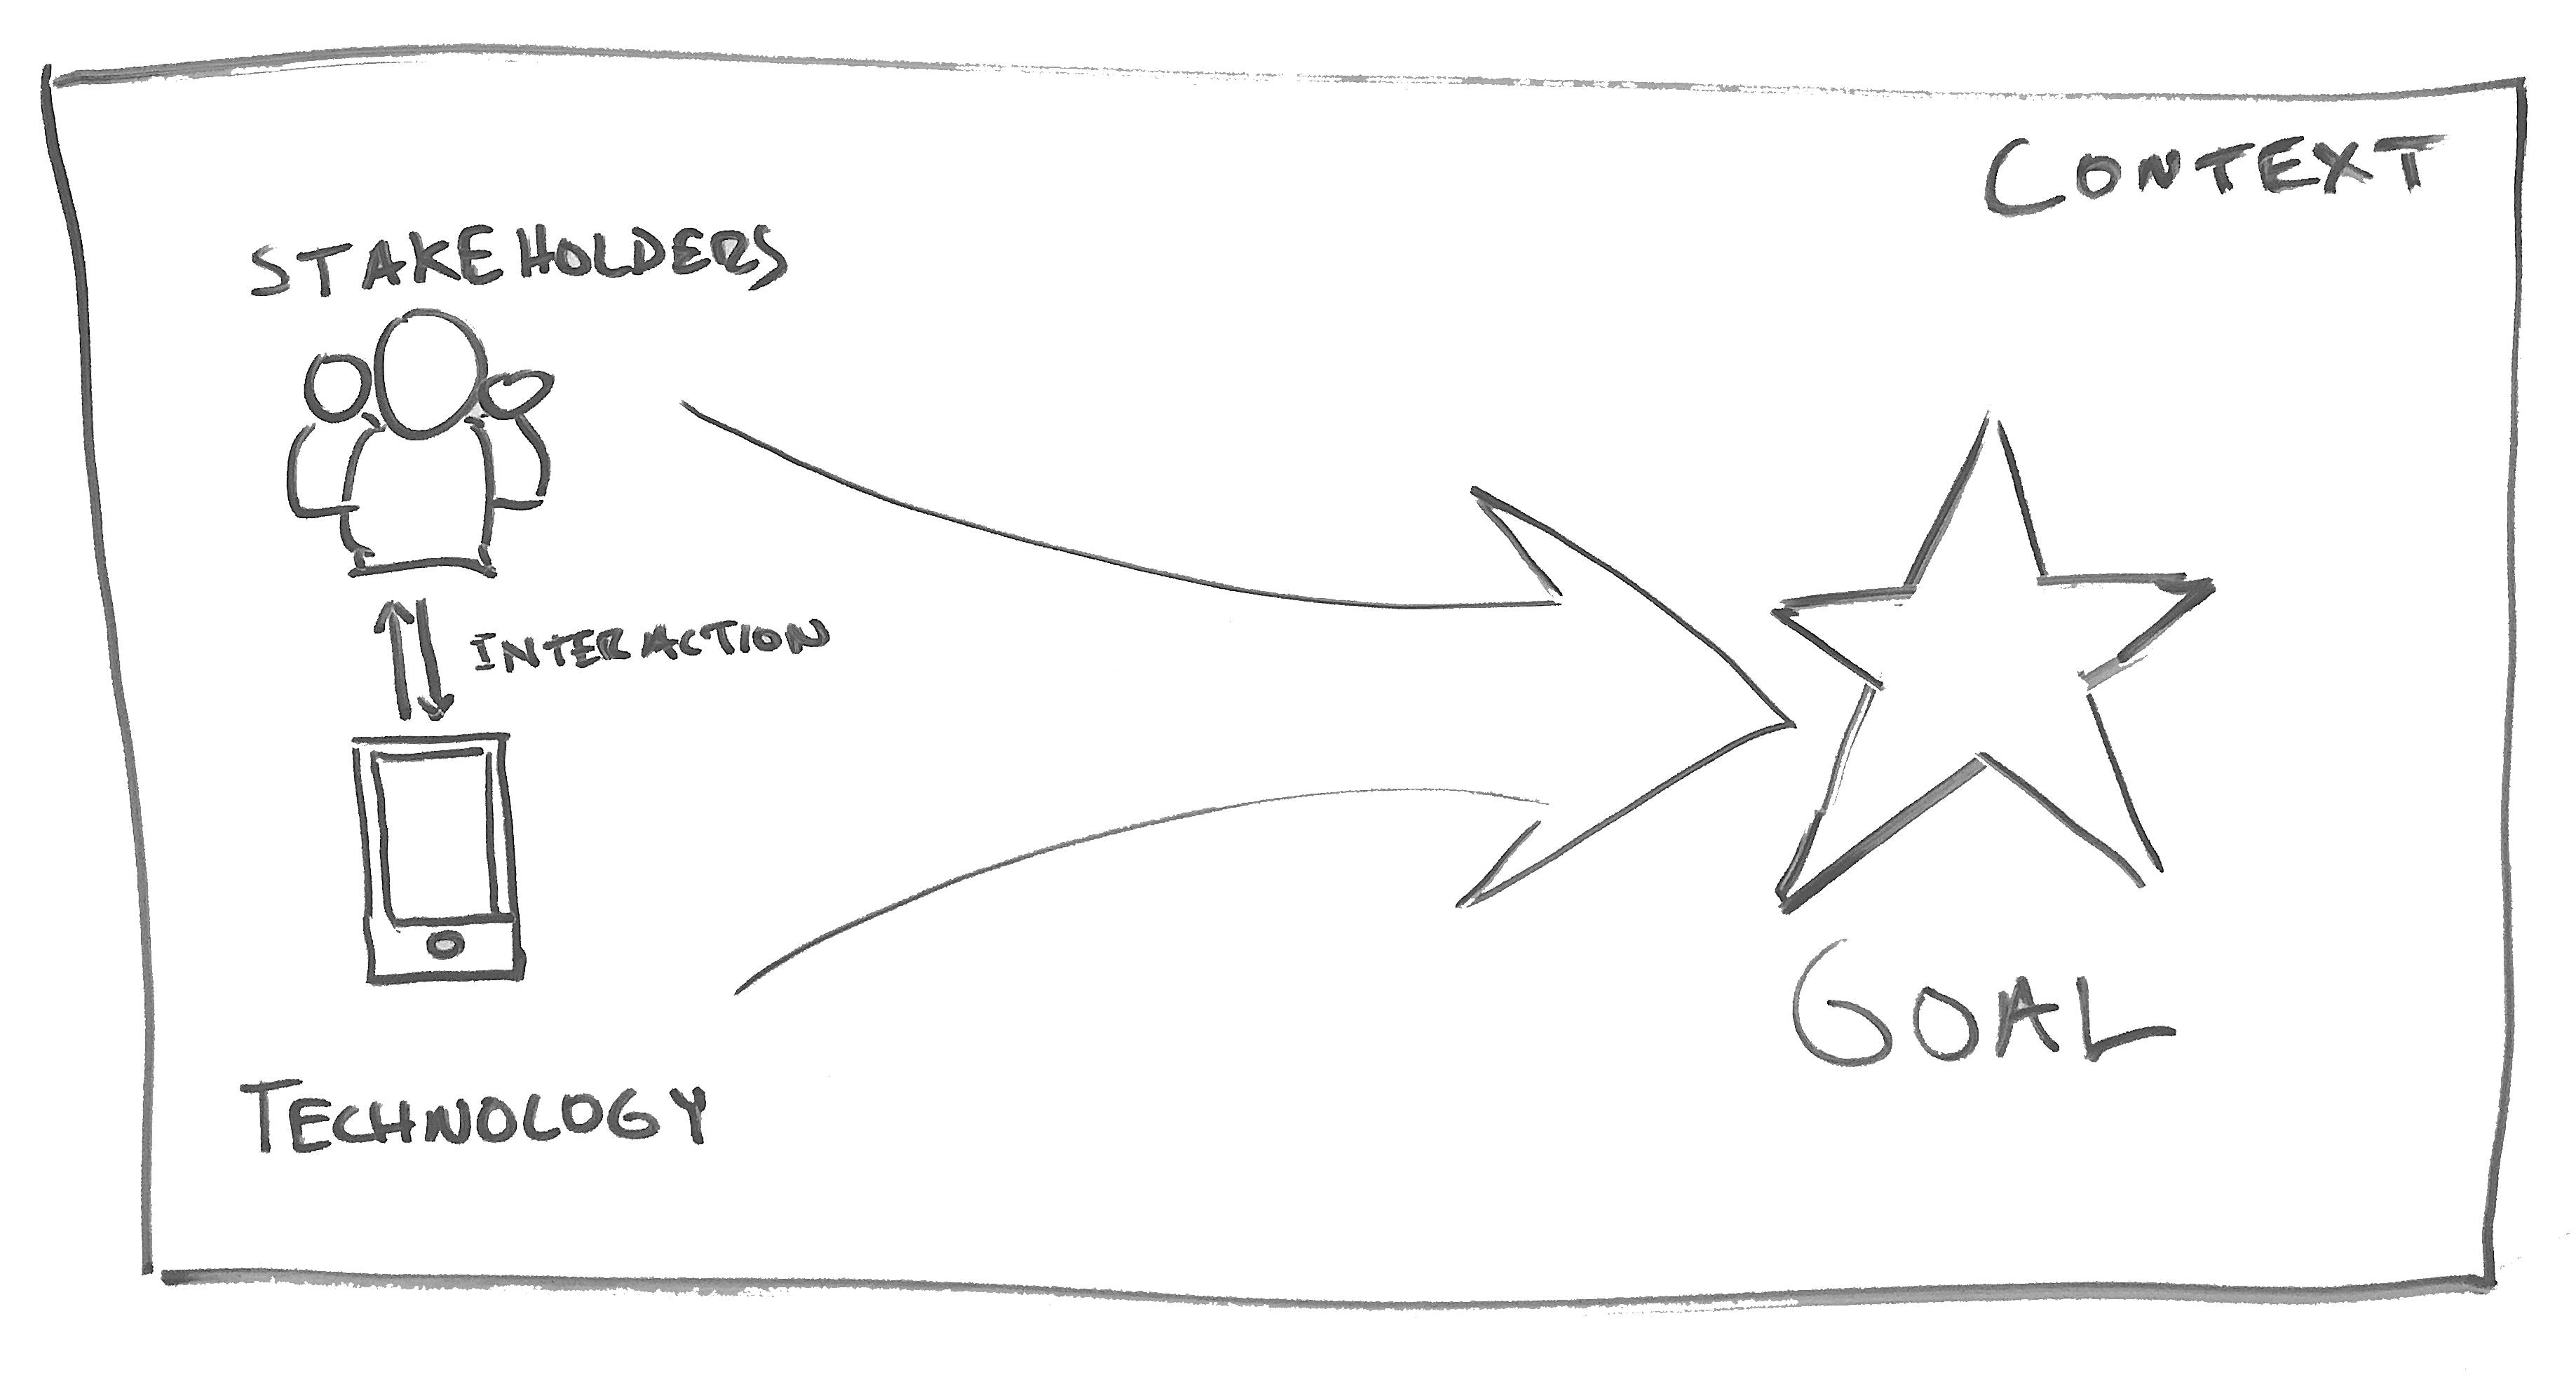 CONTEXT
STAKEHOLDERS
INTERACTION
TECHNOLOGY
GOAL